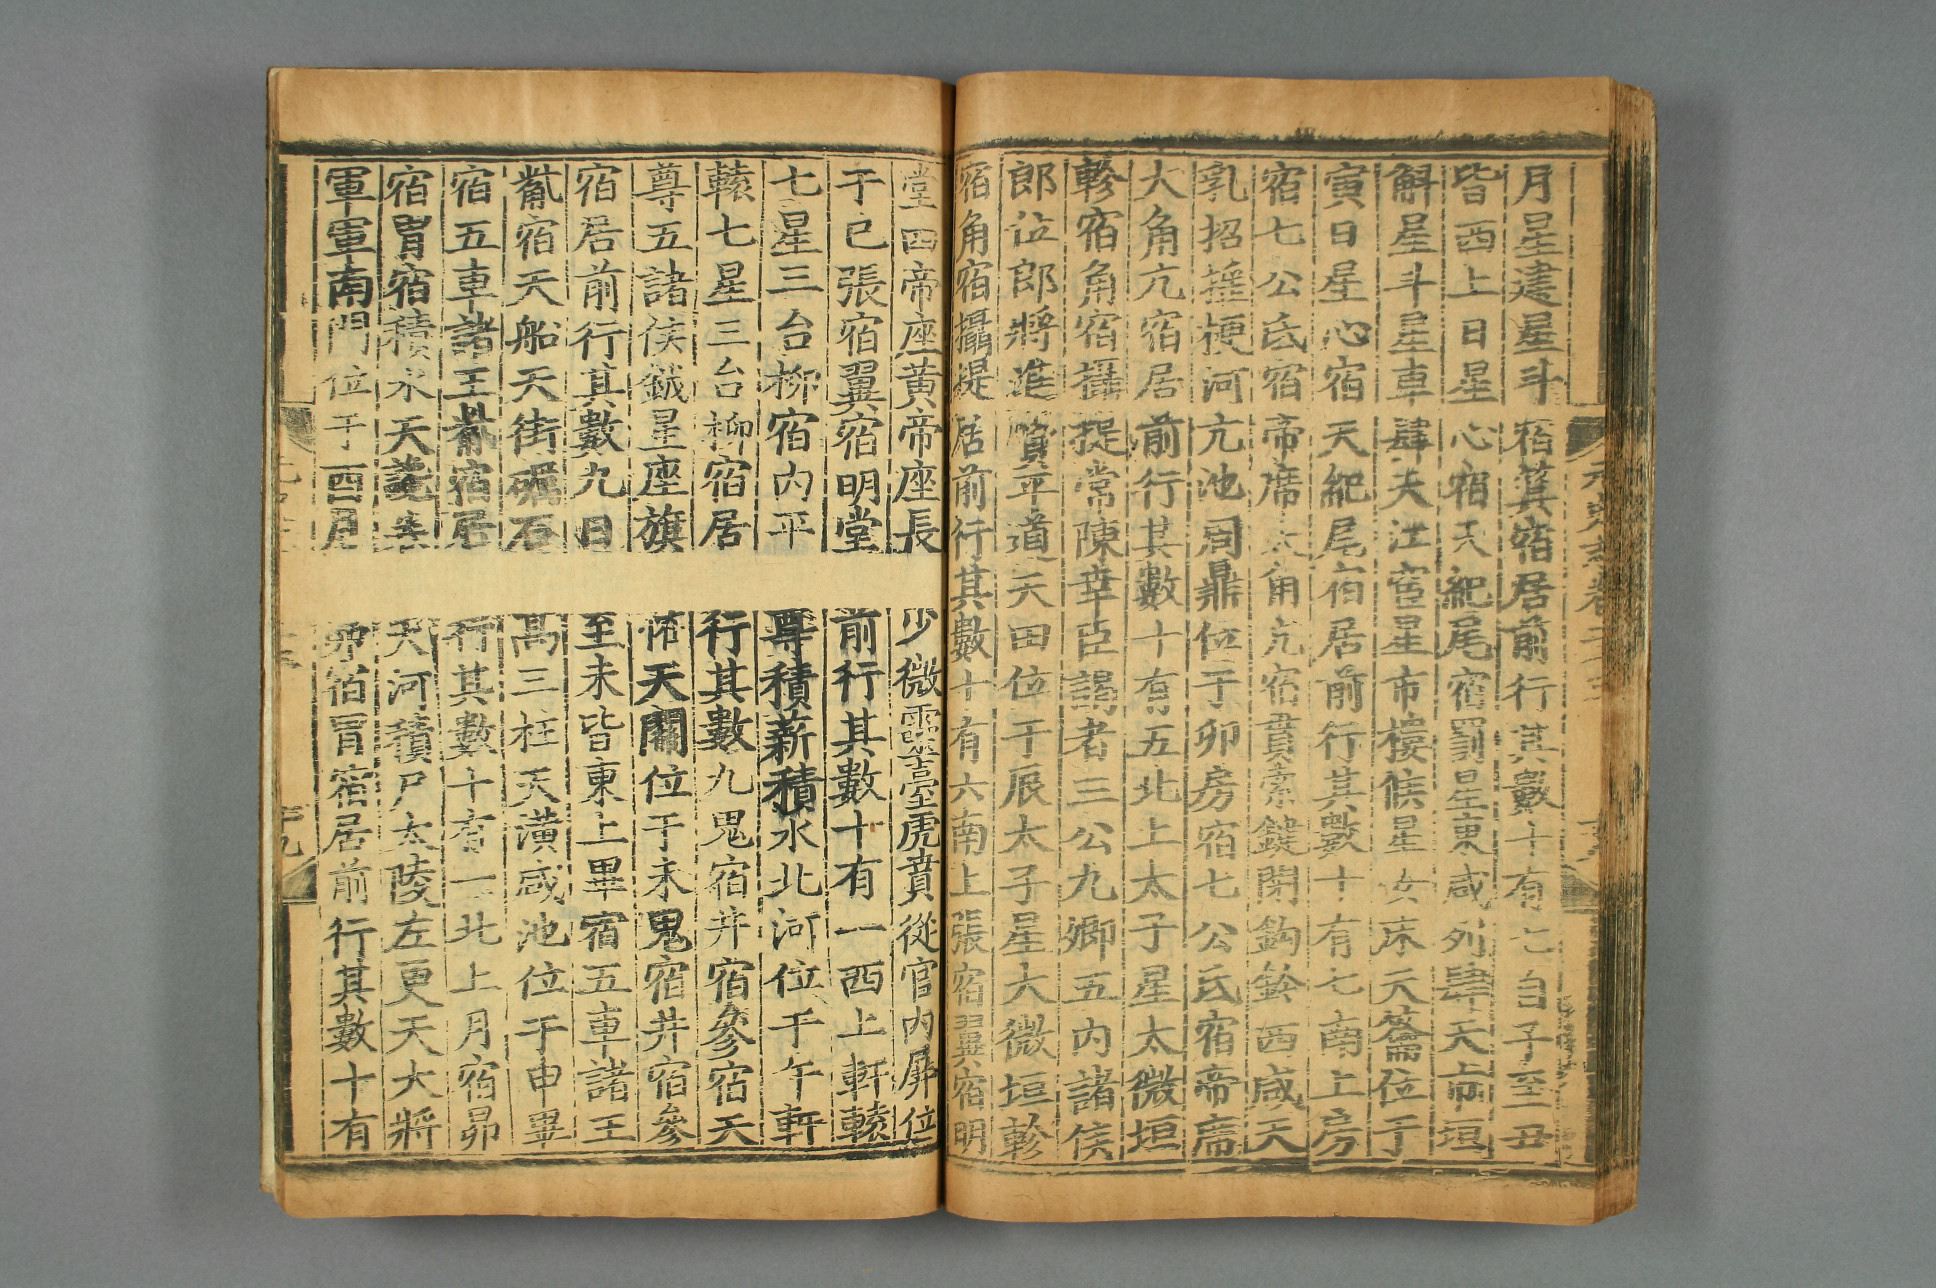 月星建星斗宿箕宿居前行其數十有七自子至丑
皆西上日星心宿天紀尾宿罰星東咸列肆天市垣
斛星斗星車肆天江宦星市樓候星女床天籥位于
寅日星心宿天紀尾宿居前行其數十有七南上房
宿七公氐宿帝席大角亢宿貫索鍵閉鈎鈐西咸天
乳招搖梗河亢池周鼎位于卯房宿七公氐宿帝席
大角亢宿居前行其數十有五北上太子星太微垣
軫宿角宿攝提常陳幸臣謁者三公九卿五內諸侯
郎位郎將進賢平道天田位于辰太子星太微垣軫
宿角宿攝提居前行其數十有六南上張宿翼宿明
堂四帝座黃帝座長少微靈臺虎賁從官內屏位
于巳張宿翼宿明堂前行其數十有一西上軒轅
七星三台柳宿內平尊積薪積水北河位于午軒
轅七星三台柳宿居行其數九鬼宿井宿參宿天
尊五諸侯鉞星座旗天關位于未鬼宿井宿參
宿居前行其數九日至未皆東上畢宿五車諸王
觜宿天船天街礪石高三柱天潢咸池位于申畢
宿五車諸王觜宿居行其數十有一北上月宿昴
宿胃宿積水天讒天河積尸太陵左更天大將
軍軍南門位于酉月宿胃宿居前行其數十有